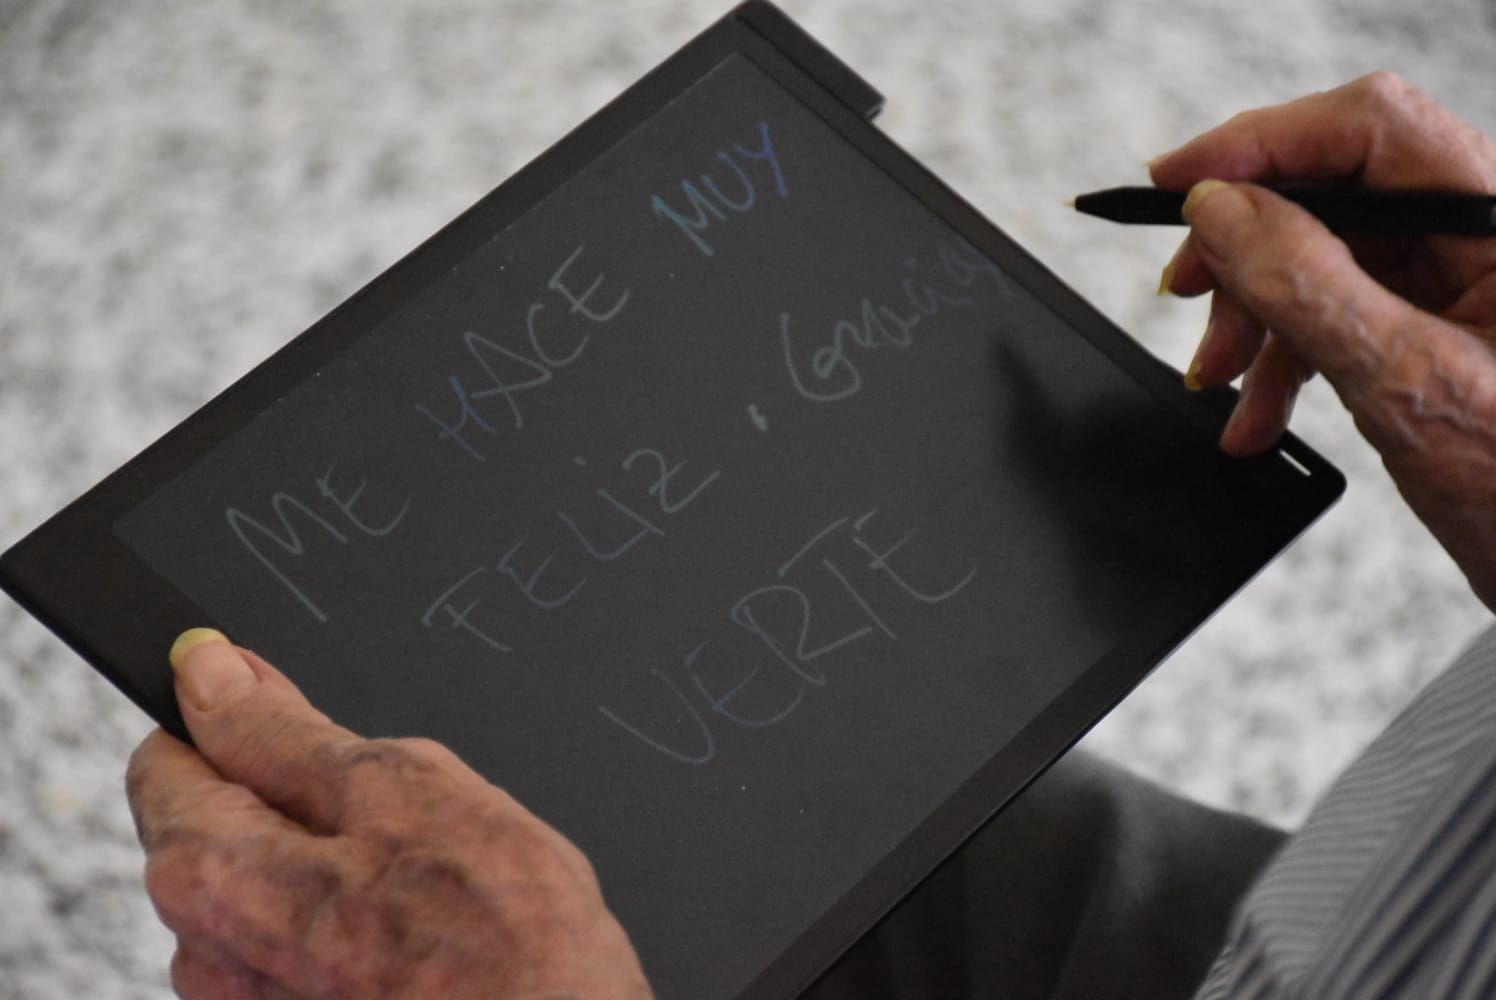 ME HACE MUY
FELIZ. Gracias
VERTE